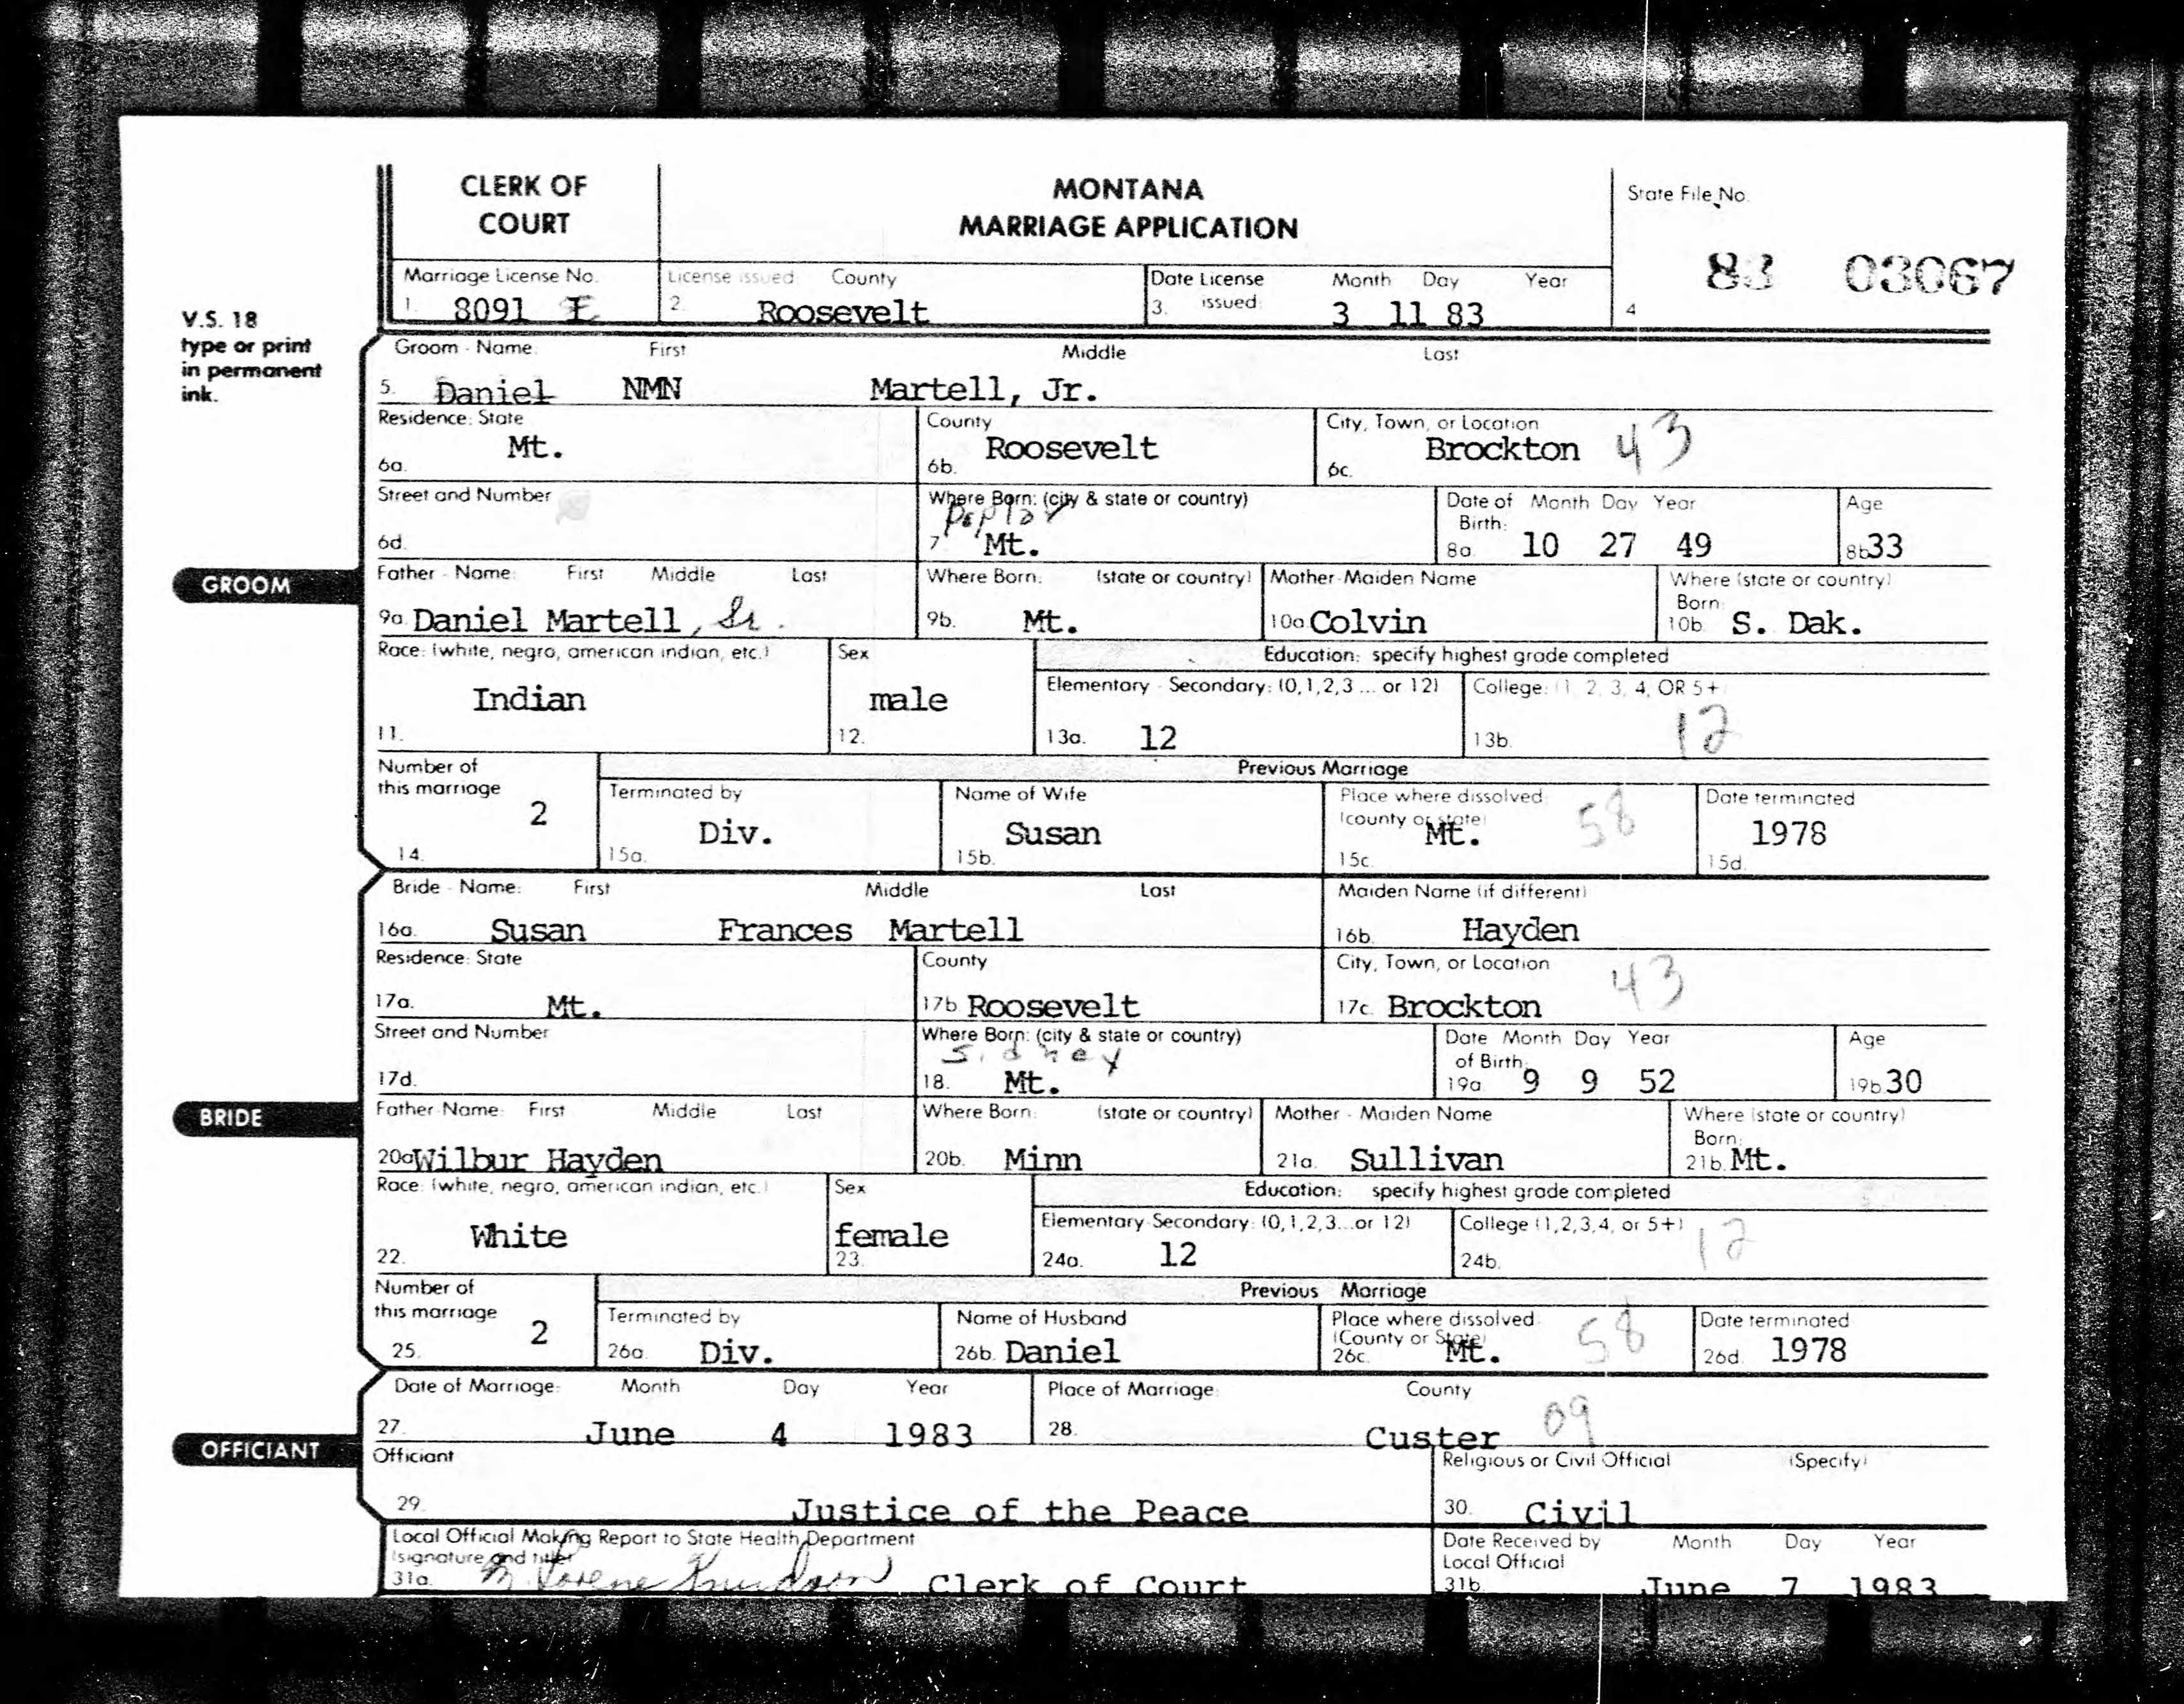 CLERK OF COURT
MONTANA
MARRIAGE APPLICATION
State File No.
83 03067
4
Marriage License No.
1. 8091 E
License issued: County
2. Roosevelt
Date License issued: Month Day Year
3. 3 11 83
V.S. 18
type or print
in permanent
ink.
GROOM
Groom - Name: First Middle Last
5. Daniel NMN Martell, Jr.
Residence: State
6a. Mt.
County
6b. Roosevelt
City, Town, or Location
6c. Brockton 43
Street and Number
6d.
Where Born: (city & state or country)
Poplar
7 Mt.
Date of Birth: Month Day Year
8a 10 27 49
Age
8b 33
Father - Name: First Middle Last
9a. Daniel Martell, Sr.
Where Born: (state or country)
9b. Mt.
Mother-Maiden Name
10a Colvin
Where (state or country)
Born:
10b S. Dak.
Race: (white, negro, american indian, etc.)
11. Indian
Sex
12. male
Education: specify highest grade completed
Elementary - Secondary: (0,1,2,3 ... or 12)
13a. 12
College: (1, 2, 3, 4, OR 5+)
13b. 12
Number of
this marriage
14. 2
Previous Marriage
Terminated by
15a. Div.
Name of Wife
15b. Susan
Place where dissolved:
(county or state)
15c. Mt. 58
Date terminated
15d. 1978
BRIDE
Bride - Name: First Middle Last
16a. Susan Frances Martell
Maiden Name (if different)
16b. Hayden
Residence: State
17a. Mt.
County
17b. Roosevelt
City, Town, or Location
17c. Brockton 43
Street and Number
17d.
Where Born: (city & state or country)
Sidney
18. Mt.
Date of Birth: Month Day Year
19a 9 9 52
Age
19b 30
Father-Name: First Middle Last
20a Wilbur Hayden
Where Born: (state or country)
20b. Minn
Mother - Maiden Name
21a. Sullivan
Where (state or country)
Born:
21b. Mt.
Race: (white, negro, american indian, etc.)
22. White
Sex
23. female
Education: specify highest grade completed
Elementary-Secondary: (0,1,2,3...or 12)
24a. 12
College (1,2,3,4, or 5+)
24b. 12
Number of
this marriage
25. 2
Previous Marriage
Terminated by
26a. Div.
Name of Husband
26b. Daniel
Place where dissolved:
(County or State)
26c. Mt. 58
Date terminated
26d. 1978
OFFICIANT
Date of Marriage: Month Day Year
27. June 4 1983
Place of Marriage: County
28. Custer 09
Officiant
29. Justice of the Peace
Religious or Civil Official (Specify)
30. Civil
Local Official Making Report to State Health Department
(signature and title)
31a. M. Lorene Knudson Clerk of Court
Date Received by Local Official Month Day Year
31b. June 7 1983